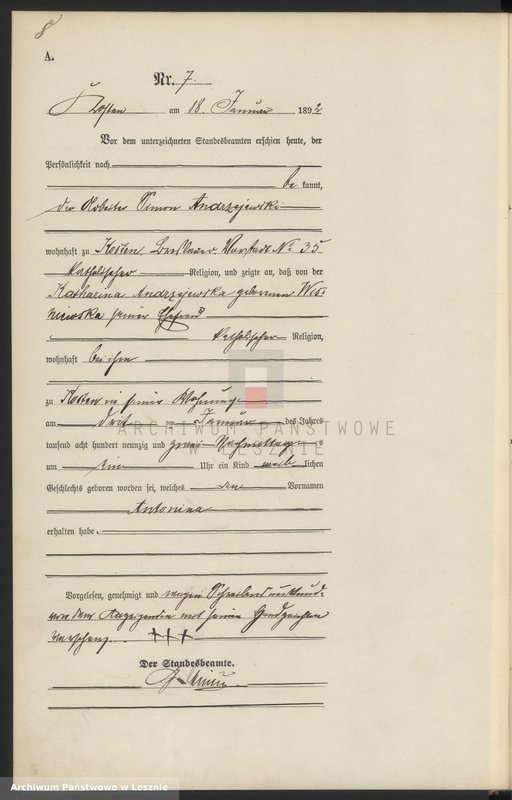 8
A.
Nr. 7.
Kosten am 18. Januar 1892
Vor dem unterzeichneten Standesbeamten erschien heute, der
Persönlichkeit nach
be kannt,
der Arbeiter Simon Andrzejewski
wohnhaft zu Kosten, Breslauer Vorstadt No 35
katholischer Religion, und zeigte an, daß von der
Katharina Andrzejewska geborenen Wes-
niewska seiner Ehefrau
katholischer Religion,
wohnhaft bei ihm
zu Kosten in seiner Wohnung
am drei ten Januar des Jahres
tausend acht hundert neunzig und zwei Nachmittag s
um ein Uhr ein Kind weib lichen
Geschlechts geboren worden sei, welches den Vornamen
Antonina
erhalten habe.
Vorgelesen, genehmigt und wegen Schreibensunkunde
von dem Anzeigenden mit seinen Handzeichen
versehen. +++
Der Standesbeamte.
ARCHIWUM PAŃSTWOWE
W LESZNIE
Archiwum Państwowe w Lesznie